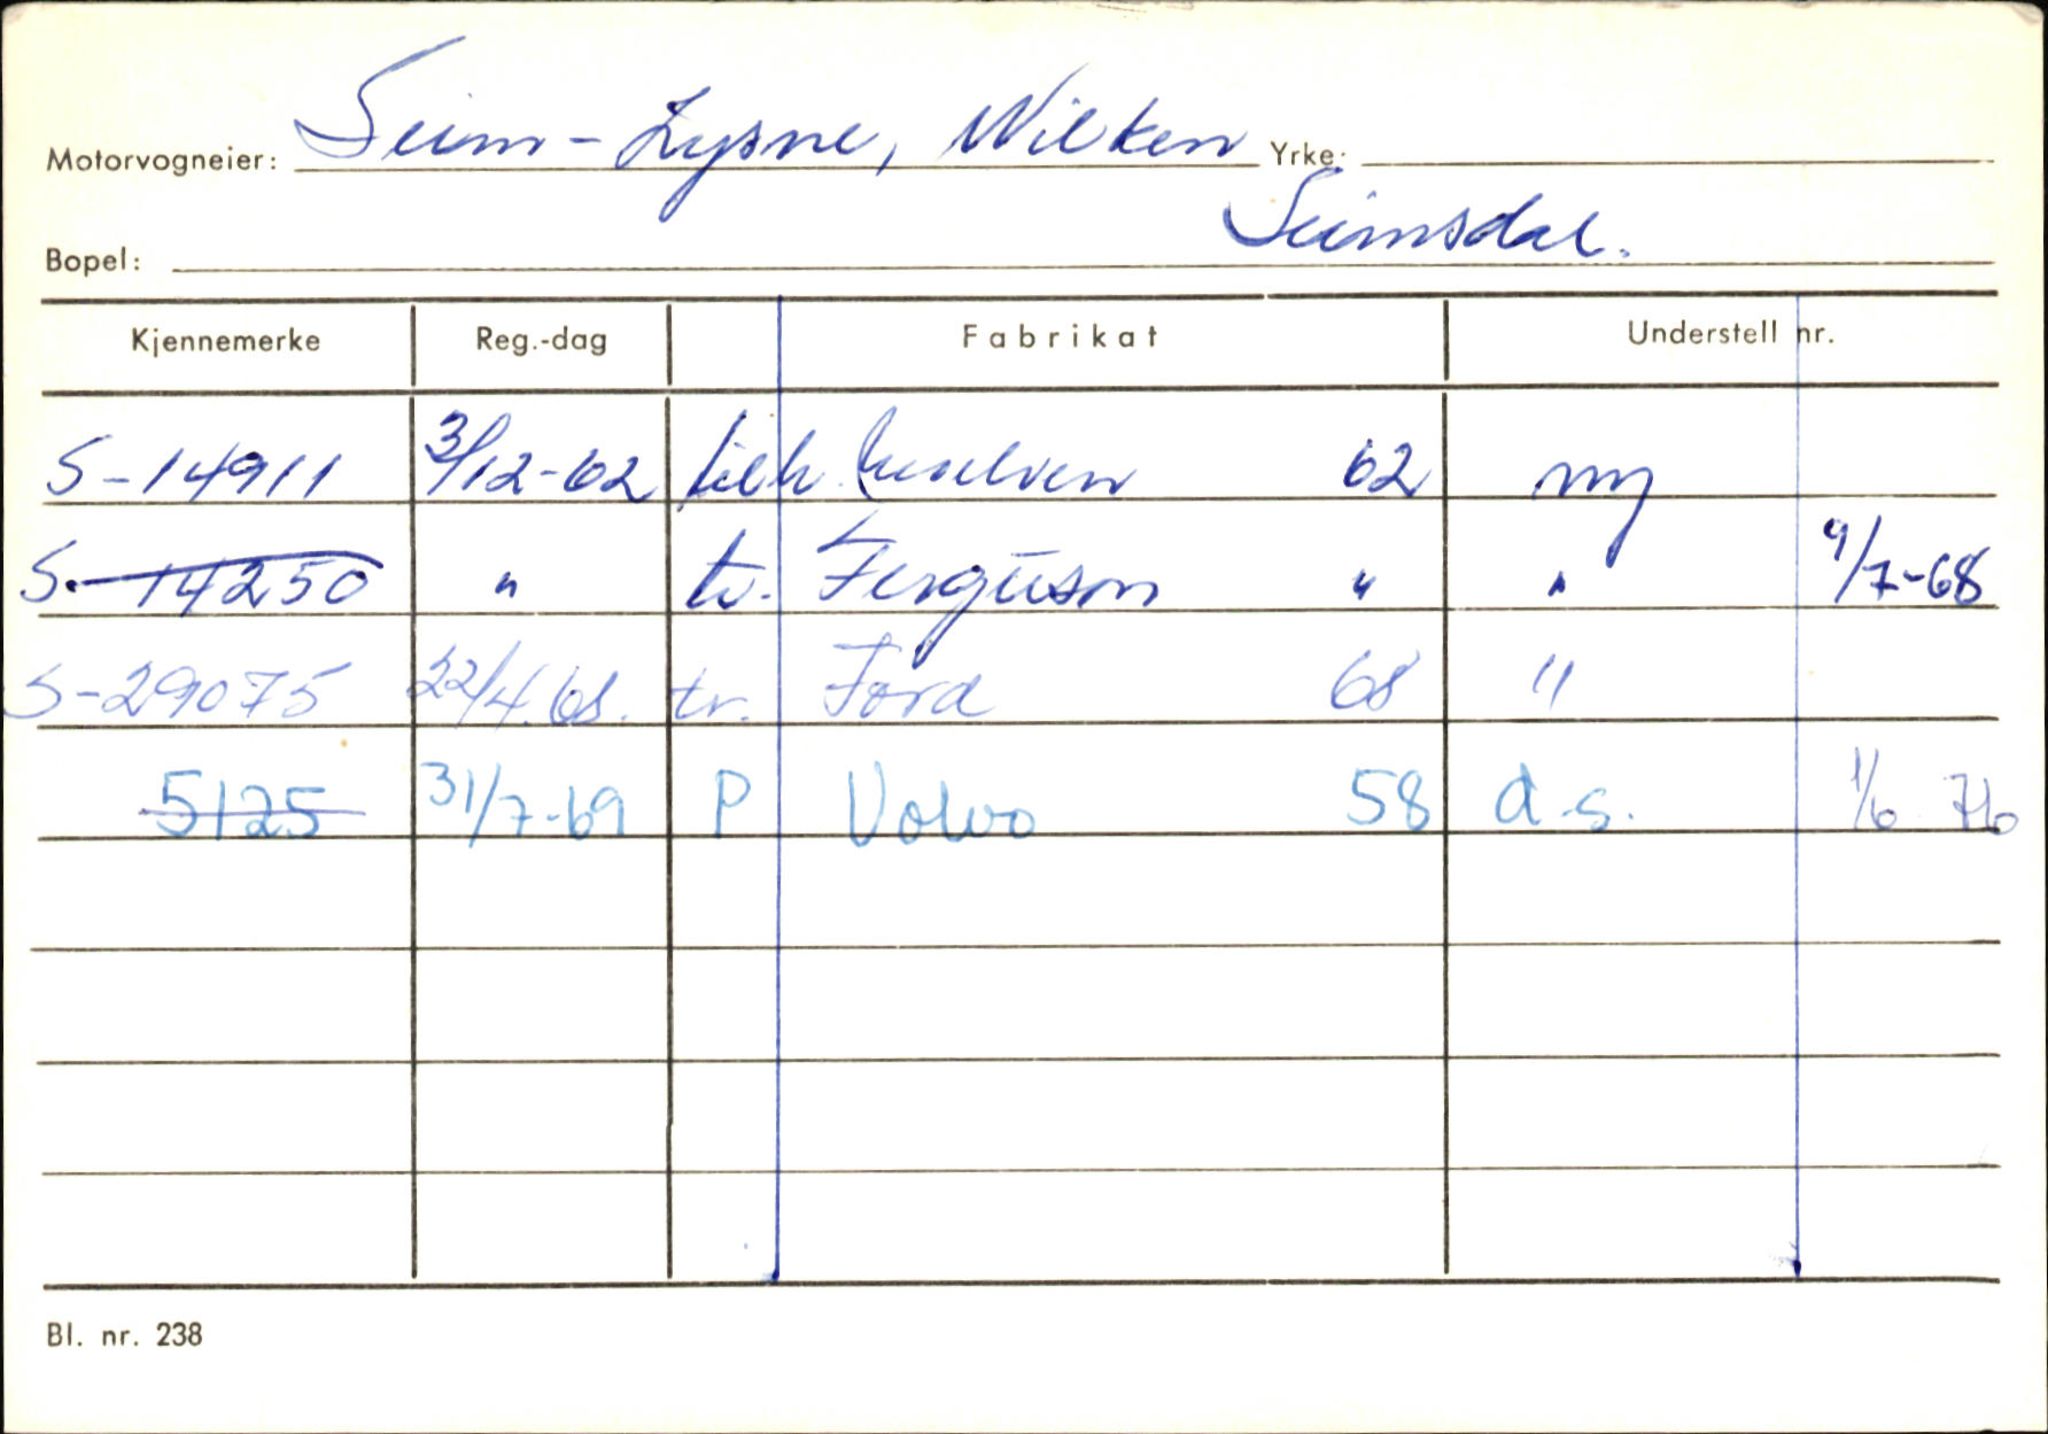 Motorvogneier: Seim-Lysne, Wilken Yrke:
Bopel: Seimsdal.
Kjennemerke Reg.-dag Fabrikat Understell nr.
S-14911 3/12-62 tilh. 62 ny
S-14250 " tr. Ferguson " " 9/7-68
S-29075 22/4.68. tr. Ford 68 "
5125 31/7-69 P Volvo 58 d.s. 1/6 76
Bl. nr. 238